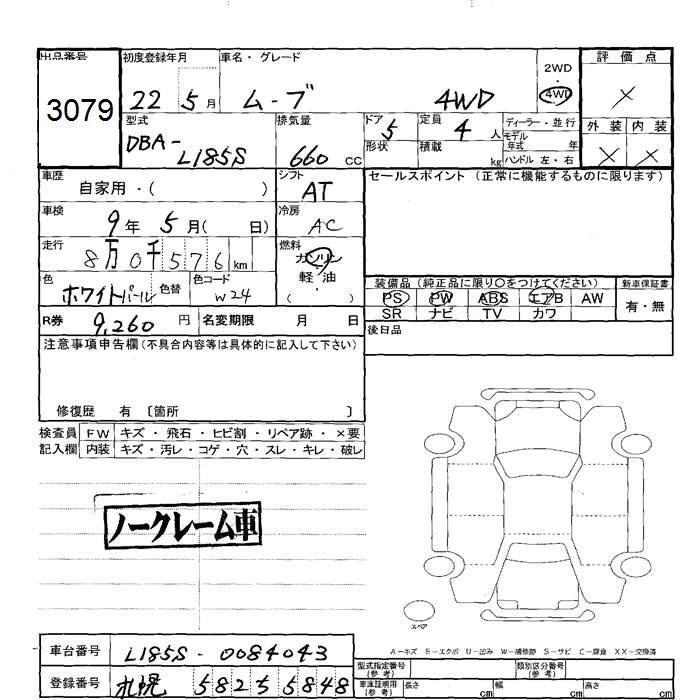 出品番号 初度登録年月 車名・グレード 2WD・4WD 評価点
3079 22 5月 ムーブ 4WD ×
型式 排気量 ドア 5 定員 4人 ディーラー・並行 外装 内装
DBA-L185S 660 CC 形状 積載 kg モデル年式 年 ハンドル 左・右 × ×
車歴 自家用・( ) シフト AT セールスポイント (正常に機能するものに限ります)
車検 9年 5月( 日) 冷房 AC
走行 8万0千576km 燃料 ガソリン
軽・油
( )
色 ホワイトパール 色替 色コード W24 装備品(純正品に限り○をつけてください) 新車保証書
PS PW ABS エアB AW 有・無
SR ナビ TV カワ
R券 9,260円 名変期限 月 日 後日品
注意事項申告欄(不具合内容等は具体的に記入して下さい)
修復歴 有 〔箇所 〕
検査員 FW キズ・飛石・ヒビ割・リペア跡・×要
記入欄 内装 キズ・汚レ・コゲ・穴・スレ・キレ・破レ
ノークレーム車
スペア
A-キズ E-エクボ U-凹み W-補修跡 S-サビ C-腐食 XX-交換済
車台番号 L185S-0084043 型式指定番号(参考) 類別区分番号(参考)
登録番号 札幌 582 55848 車庫証明用(参考) 長さ cm 幅 cm 高さ cm